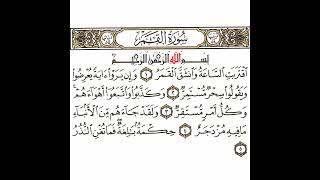 سُورَةُ الْقَمَرِ
بِسْمِ اللَّهِ الرَّحْمَٰنِ الرَّحِيمِ
ٱقْتَرَبَتِ ٱلسَّاعَةُ وَٱنشَقَّ ٱلْقَمَرُ ١ وَإِن يَرَوْا۟ ءَايَةً يُعْرِضُوا۟
وَيَقُولُوا۟ سِحْرٌ مُّسْتَمِرٌّ ٢ وَكَذَّبُوا۟ وَٱتَّبَعُوٓا۟ أَهْوَآءَهُمْ ۚ
وَكُلُّ أَمْرٍ مُّسْتَقِرٌّ ٣ وَلَقَدْ جَآءَهُم مِّنَ ٱلْأَنۢبَآءِ
مَا فِيهِ مُزْدَجَرٌ ٤ حِكْمَةٌۢ بَٰلِغَةٌ ۖ فَمَا تُغْنِ ٱلنُّذُرُ
٥